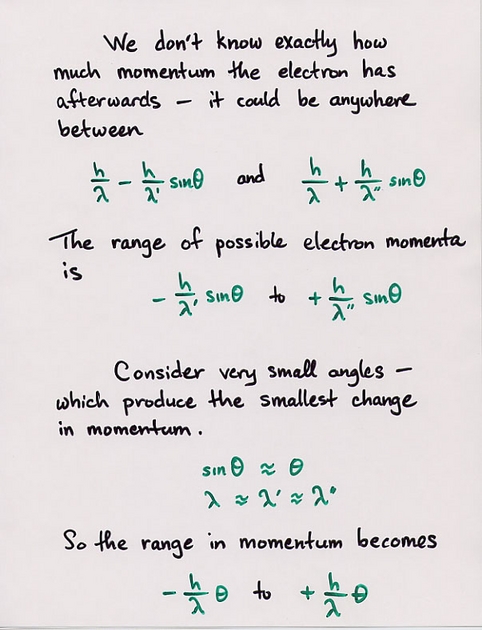 We don't know exactly how
much momentum the electron has
afterwards – it could be anywhere
between
h/λ - h/λ' sinθ and h/λ + h/λ" sinθ
The range of possible electron momenta
is
- h/λ' sinθ to + h/λ" sinθ
Consider very small angles –
which produce the smallest change
in momentum.
sinθ ≈ θ
λ ≈ λ' ≈ λ"
So the range in momentum becomes
- h/λ θ to + h/λ θ